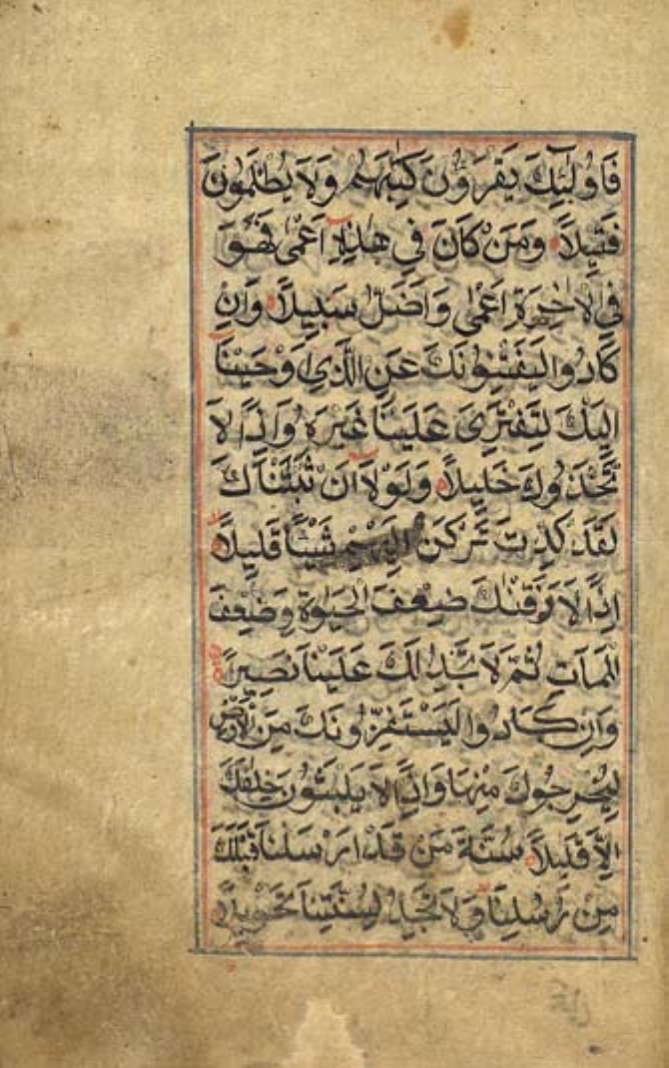 فَاُولٰٓئِكَ يَقْرَؤُنَ كِتٰبَهُمْ وَلَا يُظْلَمُونَ
فَتِيلًا وَمَنْ كَانَ فِي هٰذِهِٓ اَعْمٰى فَهُوَ
فِي الْاٰخِرَةِ اَعْمٰى وَاَضَلُّ سَبِيلًا وَاِنْ
كَادُوا لَيَفْتِنُونَكَ عَنِ الَّذِي اَوْحَيْنَٓا
اِلَيْكَ لِتَفْتَرِيَ عَلَيْنَا غَيْرَهُ وَاِذًا لَا
تَّخَذُوكَ خَلِيلًا وَلَوْلَٓا اَنْ ثَبَّتْنَاكَ
لَقَدْ كِدْتَ تَرْكَنُ اِلَيْهِمْ شَيْئًا قَلِيلًا
اِذًا لَاَذَقْنٰكَ ضِعْفَ الْحَيٰوةِ وَضِعْفَ
الْمَمَاتِ ثُمَّ لَا تَجِدُ لَكَ عَلَيْنَا نَصِيرًا
وَاِنْ كَادُوا لَيَسْتَفِزُّونَكَ مِنَ الْاَرْضِ
لِيُخْرِجُوكَ مِنْهَا وَاِذًا لَا يَلْبَثُونَ خِلٰفَكَ
اِلَّا قَلِيلًا سُنَّةَ مَنْ قَدْ اَرْسَلْنَا قَبْلَكَ
مِنْ رُسُلِنَا وَلَا تَجِدُ لِسُنَّتِنَا تَحْوِيلًا